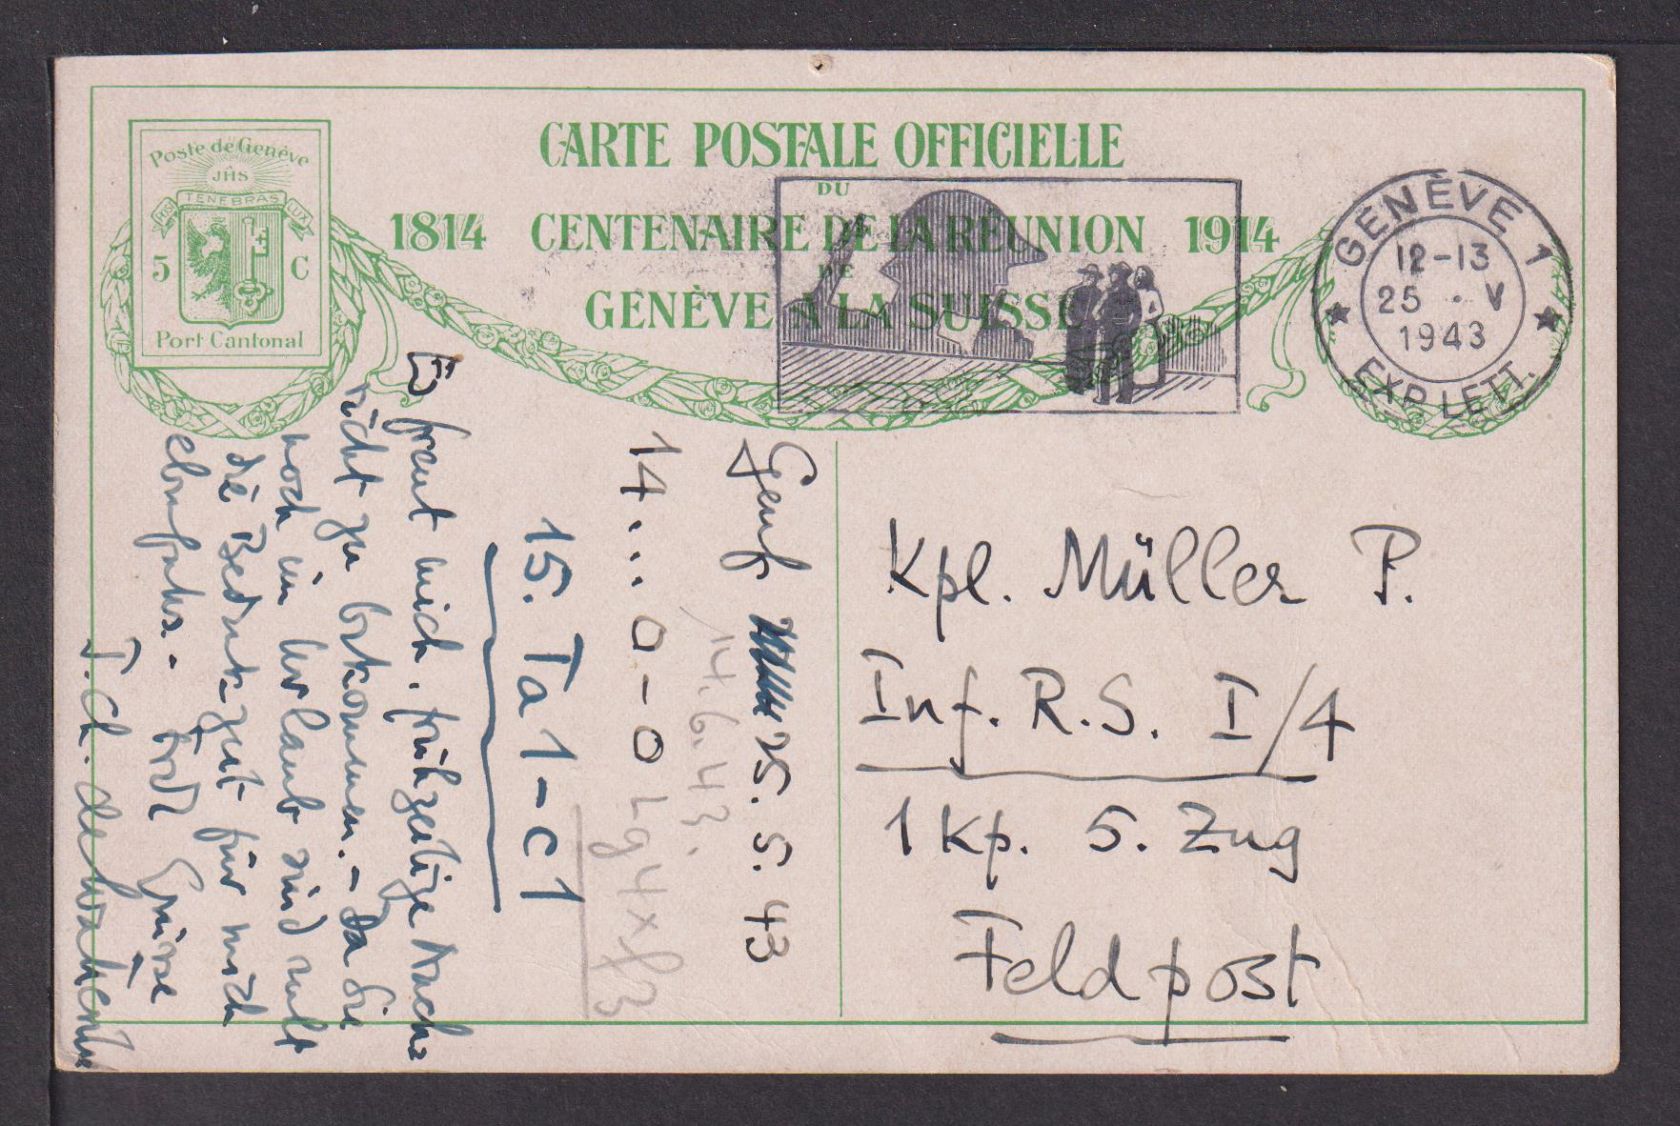 CARTE POSTALE OFFICIELLE
DU
1814 CENTENAIRE DE LA RÉUNION 1914
DE
GENÈVE A LA SUISSE
Poste de Genève
JHS
POST TENEBRAS LUX
5 C
Port Cantonal
GENÈVE 1
12-13
25 · V
1943
EXP. LETT.
Genf 25. 5. 43
14.6.43.
14... 0-0 Lg4xf3
15. Ta1-c1
Es freut mich, frühzeitige Nach=
richt zu bekommen. - Da Sie
noch im Urlaub sind gilt
die Bedenkzeit für mich
ebenfalls. - Frdl Grüsse
J. Ch. de Watteville
Kpl. Müller P.
Inf. R.S. I/4
1 Kp. 5. Zug
Feldpost